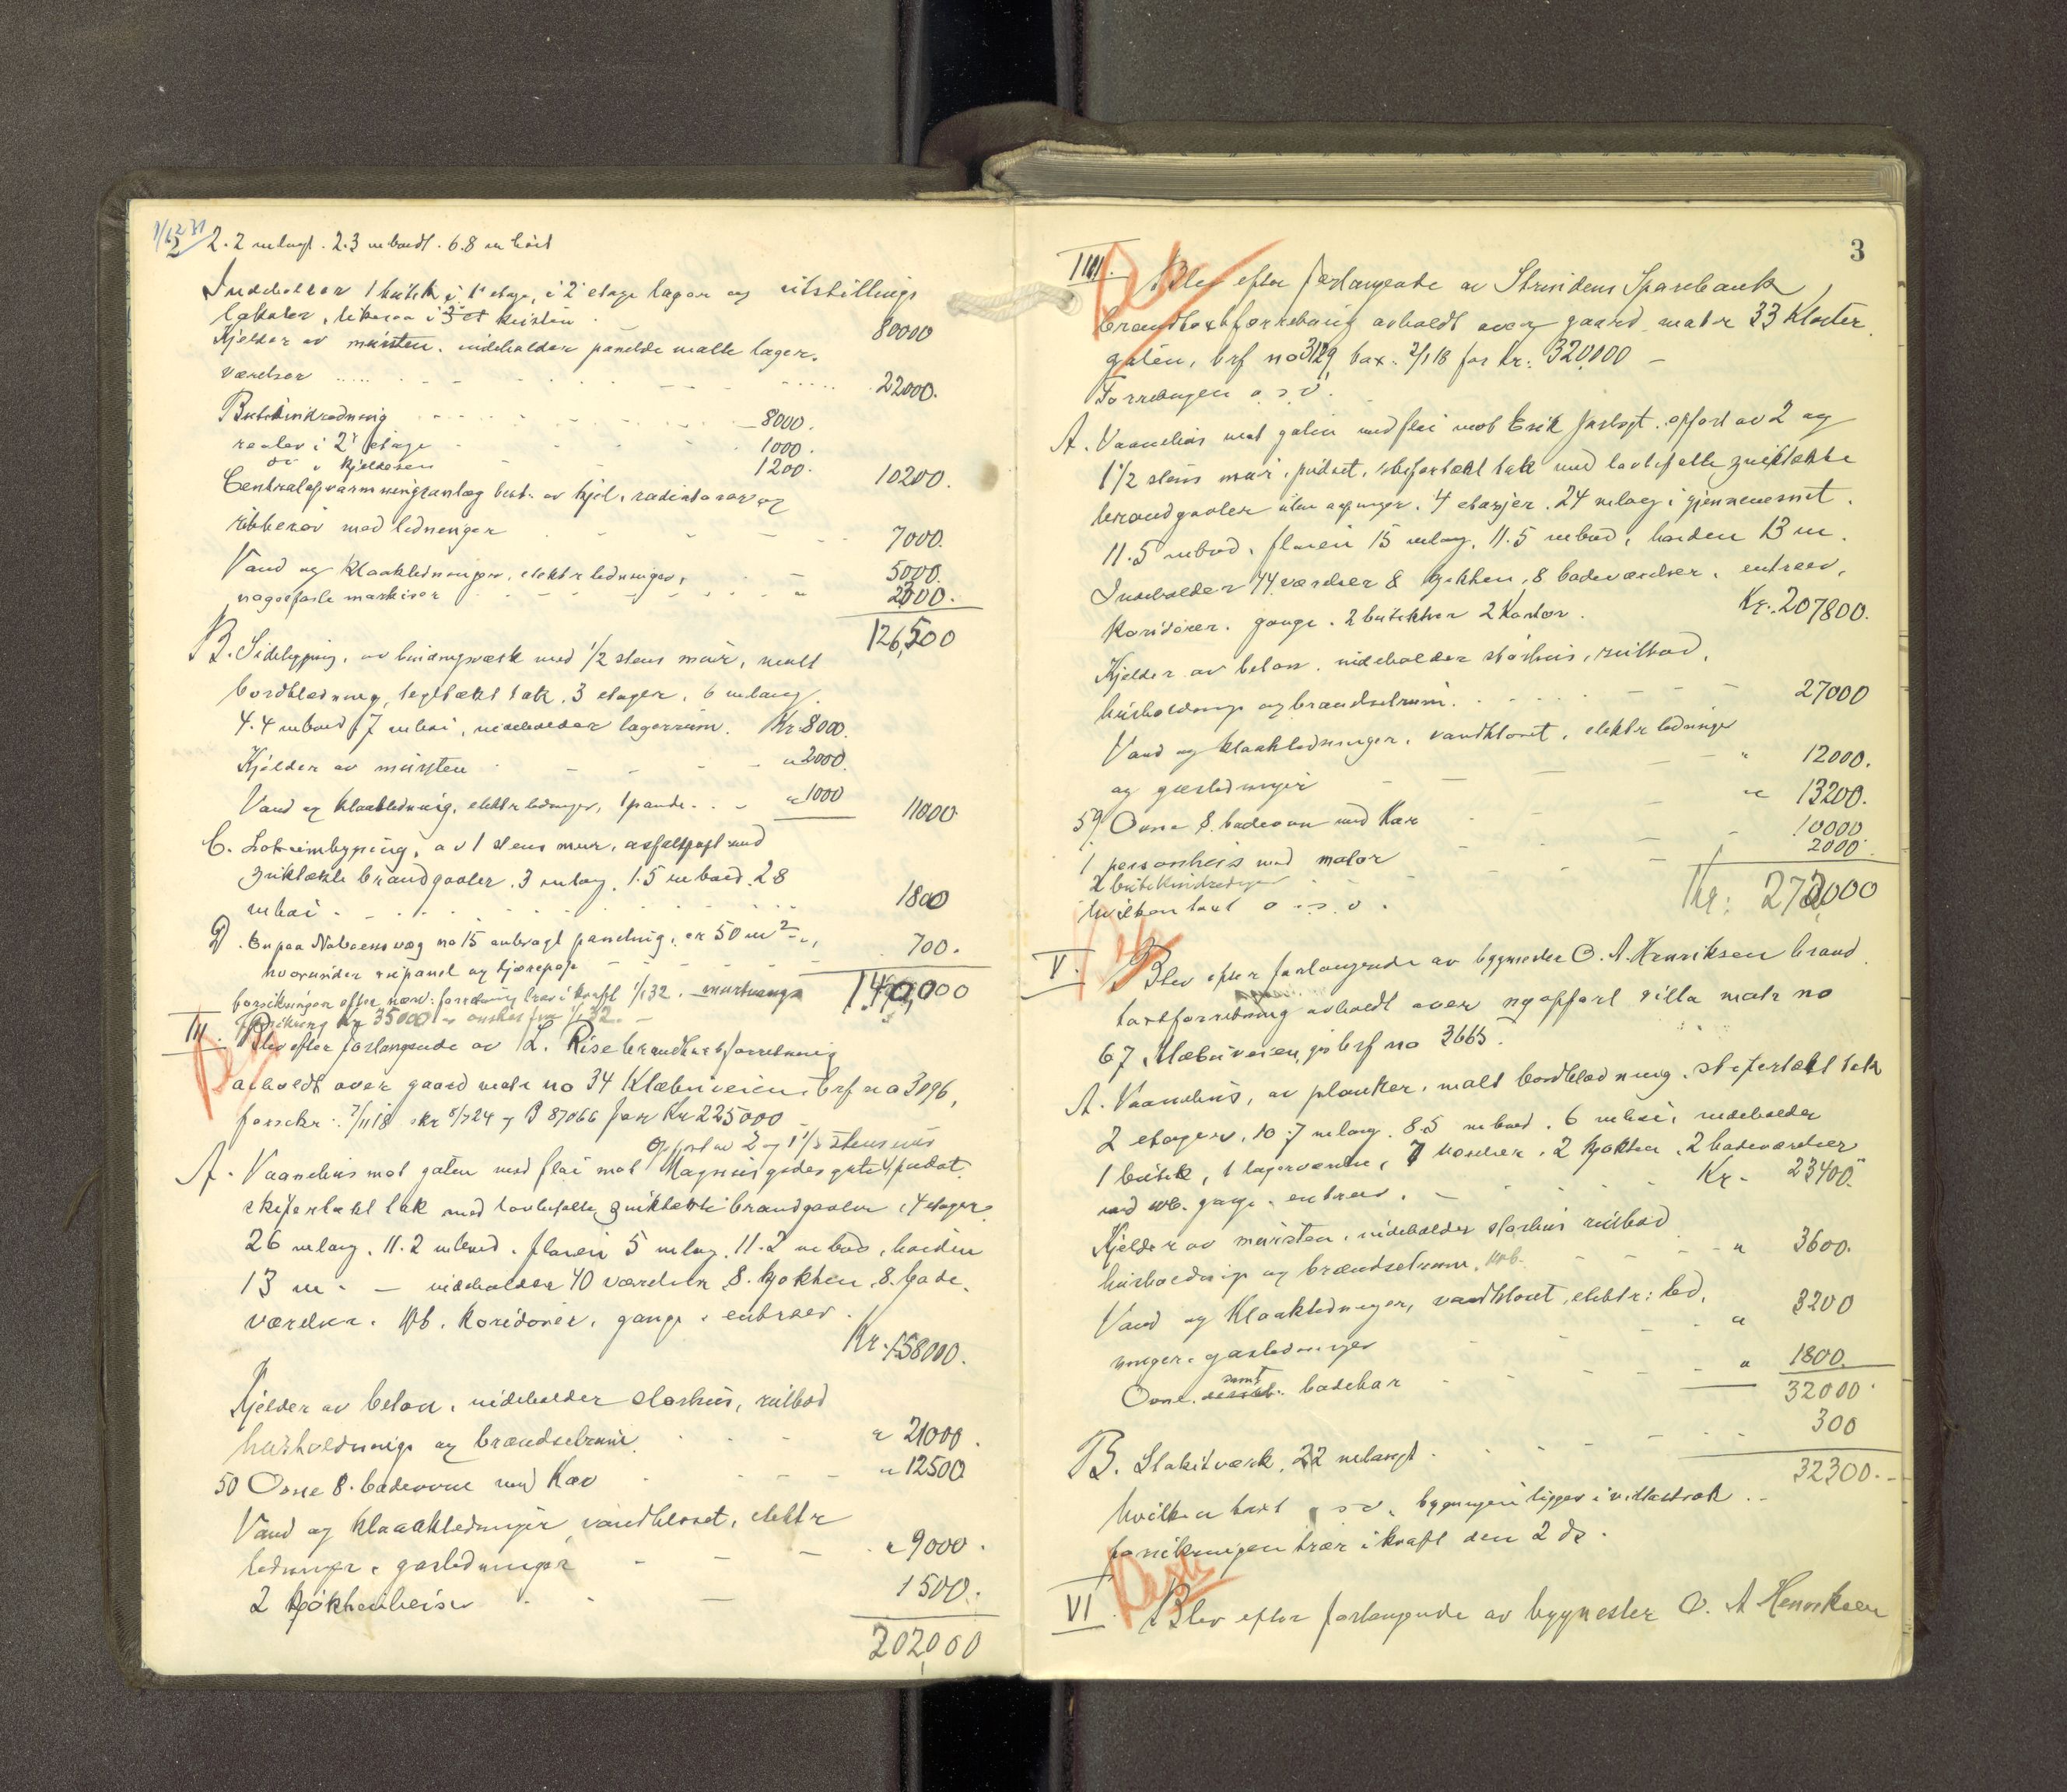 1/12 31
2
2.2 m langt. 2.3 m bredt. 6.8 m høit
Indeholder 1 butik i 1' etage, i 2' etage lager og utstillings
lokaler, likesaa i 3 et kvisten 80000
Kjelder av mursten. indeholder panelde malte lager.
værelser 22000.
Butikinredning 8000.
reoler i 2' etage 1000.
do i kjelderen 1200. 10200.
Centralopvarmningsanlæg best. av kjel, radiatorer og
ribberør med ledninger 7000.
Vand og kloakledninger, elektr ledninger, 5000.
nagelfaste markiser 2300.
126,500
B. Sidebygning, av bindingsværk med 1/2 stens mur, malt
bordklædning, tegltækt tak, 3 etager, 6 m lang
4.4 m bred 7 m høi, indeholder lagerrum. Kr 8000.
Kjelder av mursten " 2000.
Vand og kloakledning, elektr ledninger, 1 pande " 1000 11000.
C. Lokumbygning, av 1 stens mur, asfaltpap med
zinktækte brandgavler. 3 m lang, 1.5 m bred 2.8
m høi 1800
D. En paa Naboens væg no 15 anbragt paneling, ca 50 m²
hvorunder rupanel og tjærepap 700.
forsikringen efter nærv. forretning træ i kraft 1/1 32. 140,000
forsikring Kr 35000 ønskes fra 1/1 32.
III. Blev efter forlangende av L. Rise brandtaxtforretning
avholdt over gaard matr no 34 Klæbuveien, brf no 3096,
forsikr: 7/11 18 skr 8/7 24 J B 87066 for Kr 225000
Opført av 2 og 1 1/2 stens mur
A. Vaanehus mot gaten med fløi mot Magnus godes gate pudset.
skifertækt tak med lovbefalte zinktækte brandgavler, 4 etager
26 m lang, 11.2 m bred, fløien 5 m lang, 11.2 m bred, høiden
13 m. – indeholder 40 værelser, 8 kjøkken, 8 bade
værelser. Wb. koridorer, gange, entreer.
Kr. 158000.
Kjelder av beton, indeholder storhus, rulbod
husholdnings og brændselrum " 21000.
50 Ovne 8 badeovne med Kar " 12500
Vand og kloakledninger, vandkloset, elektr
ledninger, gasledninger " 9000.
2 kjøkkenheiser 1500.
202,000
3
IIII. Blev efter forlangende av Strindens Sparebank
brandtaxtforretning avholdt over gaard matr 33 Kloster
gaten, brf no 3129, tax. 2/1 18 for Kr. 320,000 –
Forretningen o s v.
A. Vaanehus mot gaten med fløi mot Erik Jarlsgt. opført av 2 og
1 1/2 stens mur, pudset, skifertækt tak med lovbefalte zinktækte
brandgavler uten aapninger. 4 etasjer. 24 m lang i gjennemsnit.
11.5 m bred, fløien 15 m lang, 11.5 m bred, høiden 13 m.
Indeholder 44 værelser 8 kjøkken, 8 badeværelser, entreer,
koridorer. gange. 2 butikker 2 Kontor. Kr. 207800.
Kjelder av beton, indeholder storhus, rulbod,
husholdnings og brændselrum. 27000
Vand og kloakledninger, vandkloset, elektr ledninger
og gasledninger " 12000.
59 Ovne 8 badeovn med Kar " 13200.
1 personheis med motor 10000
2 butikinredninger 2000.
hvilken taxt o s v. Kr: 272,000
V. Blev efter forlangende av bygmester O. A. Henriksen brand
taxtforretning avholdt over nyopført villa matr no
67 Klæbuveien, brf no 3665.
A. Vaanehus, av planker, malt bordklædning, skifertækt tak
2 etager, 10.7 m lang. 8.5 m bred. 6 m høi, indeholder
1 butik, 1 lagerværelse, 7 værelser, 2 kjøkken, 2 badeværelser
med wb. gange, entreer. Kr. 23400.
Kjelder av mursten, indeholder storhus rulbod
husholdnings og brændselrum, wb. " 3600.
Vand og Kloakledninger, vandkloset, elektr: led.
ninger, gasledninger " 3200
Ovne samt badekar " 1800.
32000.
B. Stakitværk, 22 m langt 300
32,300.-
hvilken taxt o s v. bygningen ligger i villastrøk.
forsikringen trær i kraft den 2 ds.
VI. Blev efter forlangende av bygmester O. A Henriksen